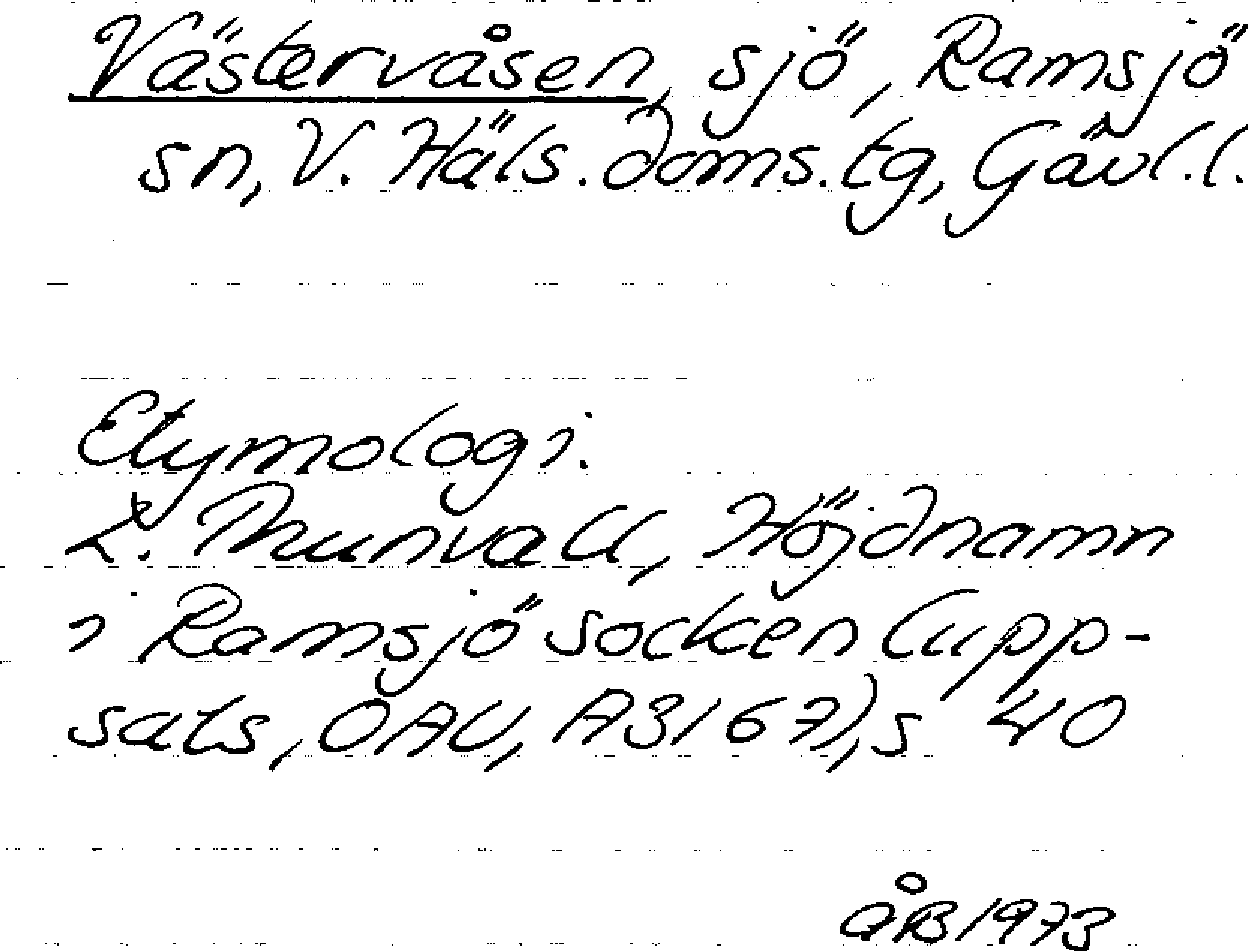 Västervåsen, sjö, Ramsjö
sn, V. Häls. doms. tg, Gävl. l.
Etymologi.
L. Thunvall, Höjdnamn
i Ramsjö socken (upp-
sats, OAU, A3167), s 40
ÅB 1973